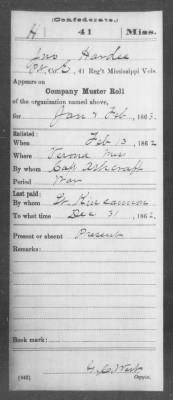 (Confederate.)
H 41 Miss.
Jno Hardee
Pvt, Co. E, 41 Reg't Mississippi Vols.
Appears on
Company Muster Roll
of the organization named above,
for Jan & Feb, 1863.
Enlisted:
When Feb 13, 1862
Where Verona Miss
By whom Capt Ashcraft
Period War
Last paid:
By whom Kincannon
To what time Dec 31, 1862.
Present or absent Present
Remarks:
Book mark:
(642) G. C. West
Copyist.